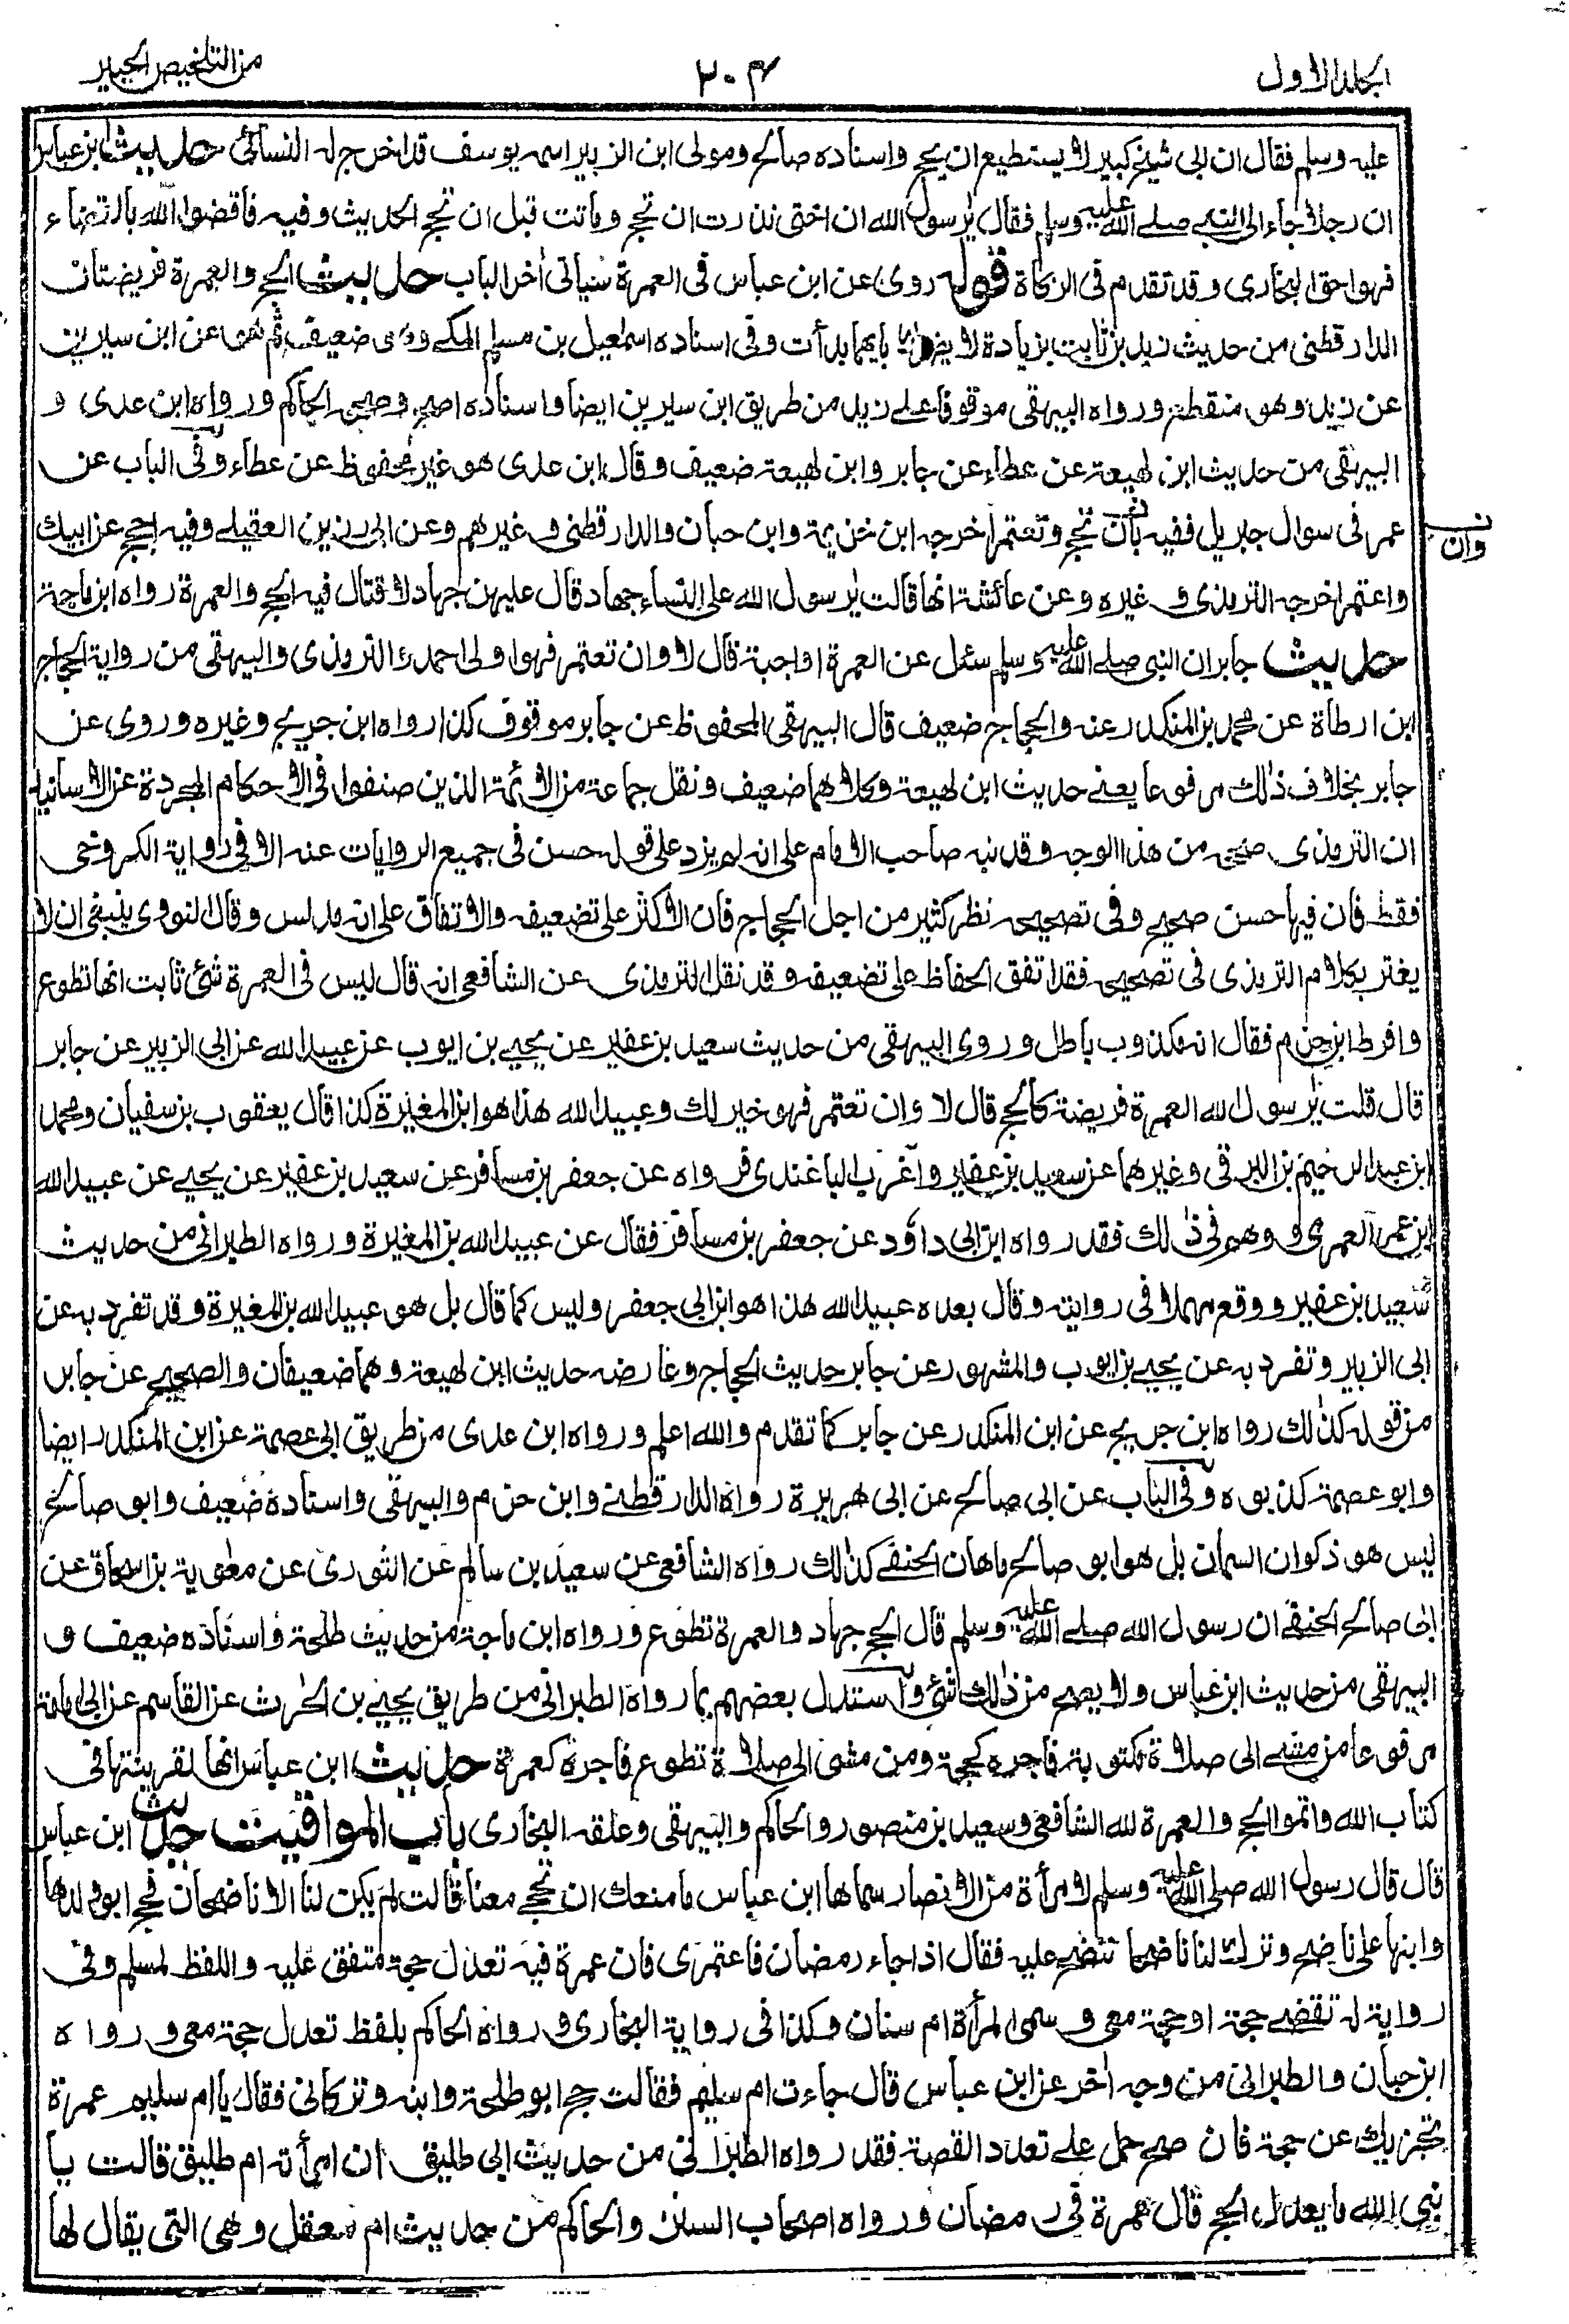 الجلد الاول
٢٠٤
من التلخيص الحبير
عليه وسلم فقال ان ابى شيخ كبير لا يستطيع ان يحج واسناده صالح ومولى ابن الزبير اسمه يوسف قد اخرج له النسائى حديث ابن عباس
ان رجلا جاء الى النبى صلے الله عليه وسلم فقال يا رسول الله ان اختى نذرت ان تحج وماتت قبل ان تحج الحديث وفيه فاقضوا الله بالقضاء
فهو احق البخارى وقد تقدم فى الزكاة قوله روى عن ابن عباس فى العمرة سياتى اخر الباب حديث الحج والعمرة فريضتان
الدارقطنى من حديث زيد بن ثابت بزيادة لا يضرك بايهما بدأت وفى اسناده اسمعيل بن مسلم المكے وهو ضعيف ثم هو عن ابن سيرين
عن زيد وهو منقطع ورواه البيهقى موقوفا علے زيد من طريق ابن سيرين ايضا واسناده اصح وصححه الحاكم ورواه ابن عدى و
البيهقى من حديث ابن لهيعة عن عطاء عن جابر وابن لهيعة ضعيف وقال ابن عدى هو غير محفوظ عن عطاء وفى الباب عن
عمر فى سوال جبريل ففيه بان تحج وتعتمر اخرجه ابن خزيمة وابن حبان والدارقطنى وغيرهم وعن ابى رزين العقيلے وفيه احجج عن ابيك
ن وان
واعتمر اخرجه الترمذى وغيره وعن عائشة انها قالت يا رسول الله على النساء جهاد قال عليهن جهاد لا قتال فيه الحج والعمرة رواه ابن ماجة
حديث جابر ان النبى صلے الله عليه وسلم سئل عن العمرة اواجبة قال لا وان تعتمر فهو اولى احمد والترمذى والبيهقى من رواية الحجاج
ابن ارطاة عن محمد بن المنكدر عنه والحجاج ضعيف قال البيهقى المحفوظ عن جابر موقوف كذا رواه ابن جريج وغيره وروى عن
جابر بخلاف ذلك مرفوعا يعنے حديث ابن لهيعة وكلاهما ضعيف ونقل جماعة من الائمة الذين صنفوا فى الاحكام المجردة عن الاسانيد
ان الترمذى صححه من هذا الوجه وقد نبه صاحب الامام على انه لم يزد على قوله حسن فى جميع الروايات عنه الا فى رواية الكروخى
فقط فان فيها حسن صحيح وفى تصحيحه نظر كثير من اجل الحجاج فان الاكثر على تضعيفه والاتفاق على انه مدلس وقال النووى ينبغى ان لا
يغتر بكلام الترمذى فى تصحيحه فقد اتفق الحفاظ على تضعيفه وقد نقل الترمذى عن الشافعى انه قال ليس فى العمرة شئ ثابت انها تطوع
وافرط ابن حزم فقال انه مكذوب باطل وروى البيهقى من حديث سعيد بن عفير عن يحيے بن ايوب عن عبيد الله عن ابى الزبير عن جابر
قال قلت يا رسول الله العمرة فريضة كالحج قال لا وان تعتمر فهو خير لك وعبيد الله هذا هو ابن المغيرة كذا قال يعقوب بن سفيان ومحمد
ابن عبد الرحيم بن البرقى وغيرهما عن سعيد بن عفير واغرب الباغندى فرواه عن جعفر بن مسافر عن سعيد بن عفير عن يحيے عن عبيد الله
ابن عمر العمرى ووهم فى ذلك فقد رواه ابن ابى داود عن جعفر بن مسافر فقال عن عبيد الله بن المغيرة ورواه الطبرانى من حديث
سعيد بن عفير ووقع مهملا فى روايته وقال بعده عبيد الله هذا هو ابن ابى جعفر وليس كما قال بل هو عبيد الله بن المغيرة وقد تفرد به عن
ابى الزبير وتفرد به عن يحيے بن ايوب والمشهور عن جابر حديث الحجاج وعارضه حديث ابن لهيعة وهما ضعيفان والصحيح عن جابر
من قوله كذلك رواه ابن جريج عن ابن المنكدر عن جابر كما تقدم والله اعلم ورواه ابن عدى من طريق ابى عصمة عن ابن المنكدر ايضا
وابو عصمة كذبوه وفى الباب عن ابى صالح عن ابى هريرة رواه الدارقطنے وابن حزم والبيهقى واسناده ضعيف وابو صالح
ليس هو ذكوان السمان بل هو ابو صالح ماهان الحنفے كذلك رواه الشافعى عن سعيد بن سالم عن الثورى عن معوية بن اسحاق عن
ابى صالح الحنفے ان رسول الله صلے الله عليه وسلم قال الحج جهاد والعمرة تطوع ورواه ابن ماجة من حديث طلحة واسناده ضعيف و
البيهقى من حديث ابن عباس ولا يصح من ذلك شئ واستدل بعضهم بما رواه الطبرانى من طريق يحيے بن الحرث عن القاسم عن ابى امامة
مرفوعا من مشے الى صلاة مكتوبة فاجره كحجة ومن مشى الى صلاة تطوع فاجره كعمرة حديث ابن عباس انها لقرينتها فى
كتاب الله واتموا الحج والعمرة لله الشافعى وسعيد بن منصور والحاكم والبيهقى وعلقه البخارى باب المواقيت حديث ابن عباس
قال قال رسول الله صلے الله عليه وسلم لامرأة من الانصار سماها ابن عباس ما منعك ان تحجے معنا قالت لم يكن لنا الا ناضحان فحج ابو ولدها
وابنها على ناضح وترك لنا ناضحا ننضح عليه فقال اذا جاء رمضان فاعتمرى فان عمرة فيه تعدل حجة متفق عليه واللفظ لمسلم وفى
رواية له تقضے حجة او حجة معى وسمى المرأة ام سنان وكذا فى رواية البخارى ورواه الحاكم بلفظ تعدل حجة معى ورواه
ابن حبان والطبرانى من وجه اخر عن ابن عباس قال جاءت ام سليم فقالت حج ابو طلحة وابنه وتركانى فقال يا ام سليم عمرة
تجزيك عن حجة فان صح حمل علے تعدد القصة فقد رواه الطبرانى من حديث ابى طليق ان امرأته ام طليق قالت يا
نبى الله ما يعدل الحج قال عمرة فى رمضان ورواه اصحاب السنن والحاكم من حديث ام معقل وهى التى يقال لها